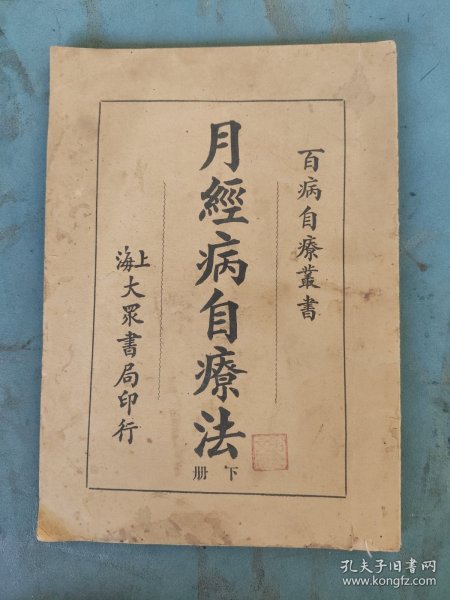 百病自療叢書
月經病自療法
下册
上海大眾書局印行
孔夫子旧书网
www.kongfz.com